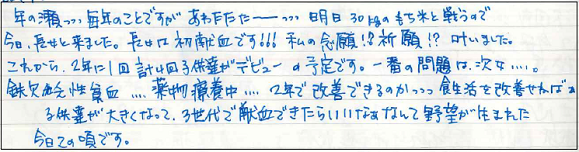 年の瀬っっっ毎年のことですが あわただた———っっっ 明日30kgのもち米と戦うので
今日、長女と来ました。長女は初献血です!!! 私の念願!?祈願!? 叶いました。
これから、2年に1回 計4回 子供達がデビューの予定です。一番の問題は、次女….。
鉄欠乏性貧血 …. 薬物療養中 …. 2年で改善できるのかっっっ 食生活を改善せねばぁ
子供達が大きくなって、3世代で献血できたらいいなぁなんて野望が生まれた
今日この頃です。